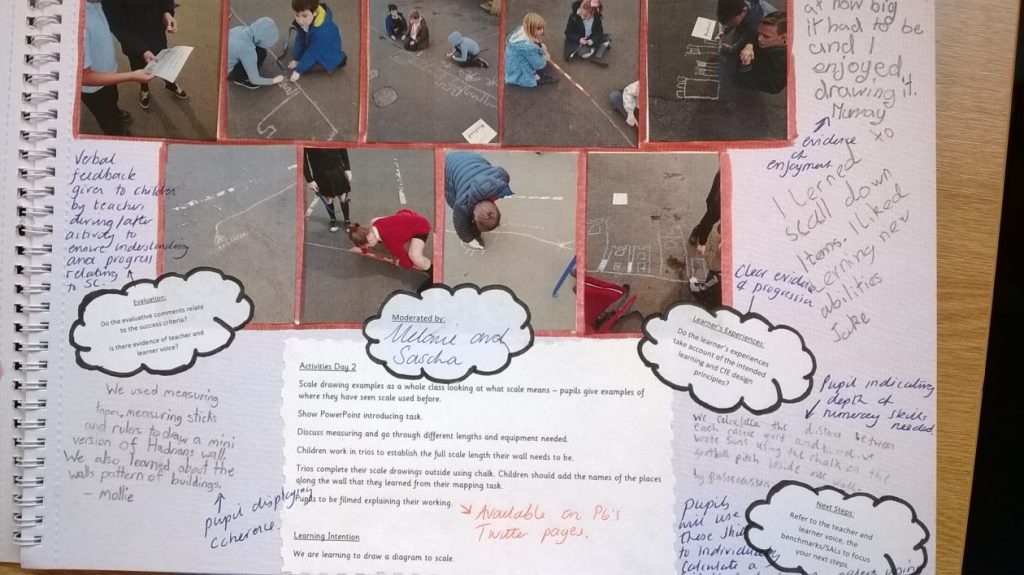 at how big
it had to be
and I
enjoyed
drawing it.
Murray
xo
evidence
of
enjoyment
I lerned
scall down
Items. I liked
lerning new
abilities
Jake
Verbal
feedback
given to children
by teacher
during/after
activity to
ensure understanding
and progress
relating
to SC.
Clear evidence
of progression
Evaluation:
Do the evaluative comments relate
to the success criteria?
Is there evidence of teacher and
learner voice?
Moderated by:
Melanie and
Sascha
Learner's Experiences:
Do the learner's experiences
take account of the intended
learning and CfE design
principles?
We used measuring
tapes, measuring sticks
and rulers to draw a mini
version of Hadrians wall.
We also learned about the
walls pattern of buildings.
- Mollie
pupil displaying
coherence.
Activities Day 2
Scale drawing examples as a whole class looking at what scale means – pupils give examples of
where they have seen scale used before.
Show PowerPoint introducing task.
Discuss measuring and go through different lengths and equipment needed.
Children work in trios to establish the full scale length their wall needs to be.
Trios complete their scale drawings outside using chalk. Children should add the names of the places
along the wall that they learned from their mapping task.
Pupils to be filmed explaining their working
Available on P6's
Twitter pages.
Learning Intention
We are learning to draw a diagram to scale.
Pupil indicating
depth of
numeracy skills
needed
the distance between
each
wrote sums using the chalk on the
football pitch beside our wall.
by
Pupils
will use
these skills
to individually
calculate a
Next Steps:
Refer to the teacher and
learner voice, the
benchmarks/SALs to focus
your next steps.